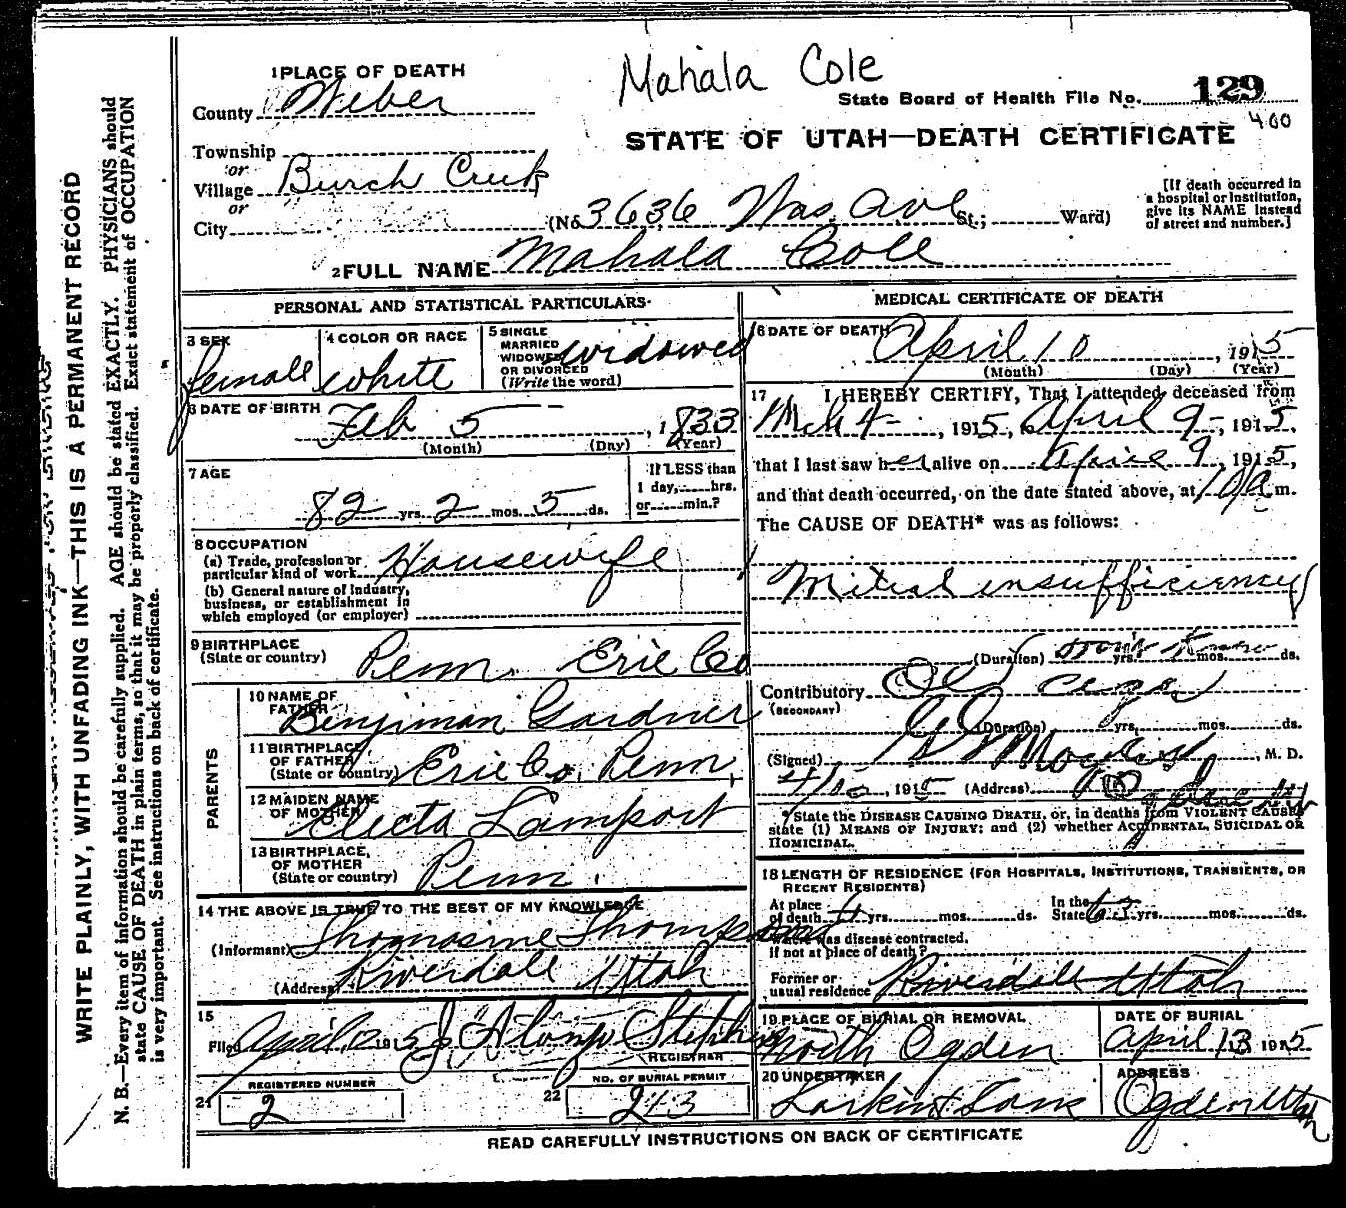 Mahala Cole
1 PLACE OF DEATH
State Board of Health File No. 129
400
County Weber
STATE OF UTAH—DEATH CERTIFICATE
Township
or
Village Burch Creek
or
City (No. 3636 Was. Ave St.; Ward)
[If death occurred in
a hospital or institution,
give its NAME instead
of street and number.]
2 FULL NAME Mahala Cole
PERSONAL AND STATISTICAL PARTICULARS
3 SEX
female
4 COLOR OR RACE
white
5 SINGLE
MARRIED
WIDOWED
OR DIVORCED
(Write the word)
widowed
6 DATE OF BIRTH Feb 5 , 1833
(Month) (Day) (Year)
7 AGE
82 yrs. 2 mos. 5 ds.
If LESS than
1 day, hrs.
or min.?
8 OCCUPATION
(a) Trade, profession or
particular kind of work Housewife
(b) General nature of Industry,
business, or establishment in
which employed (or employer)
9 BIRTHPLACE
(State or country) Penn. Erie Co
PARENTS
10 NAME OF
FATHER Binjiman Gardner
11 BIRTHPLACE
OF FATHER
(State or country) Erie Co. Penn.
12 MAIDEN NAME
OF MOTHER Electa Lamport
13 BIRTHPLACE,
OF MOTHER
(State or country) Penn.
14 THE ABOVE IS TRUE TO THE BEST OF MY KNOWLEDGE
(Informant) Thomasine Thompson
(Address) Riverdale Utah
15
Filed April 1915 Stephens
REGISTRAR
REGISTERED NUMBER
21 2
NO. OF BURIAL PERMIT
22 213
MEDICAL CERTIFICATE OF DEATH
16 DATE OF DEATH April 10 , 1915
(Month) (Day) (Year)
17 I HEREBY CERTIFY, That I attended deceased from
Mch 4 , 1915, to April 9 , 1915,
that I last saw her alive on April 9 , 1915,
and that death occurred, on the date stated above, at 10 a m.
The CAUSE OF DEATH* was as follows:
Mitral insufficiency
(Duration) don't know yrs. mos. ds.
Contributory Old age
(SECONDARY)
(Duration) yrs. mos. ds.
(Signed) , M. D.
4/ , 1915 (Address) Ogden
* State the DISEASE CAUSING DEATH, or, in deaths from VIOLENT CAUSES
state (1) MEANS OF INJURY; and (2) whether ACCIDENTAL, SUICIDAL OR
HOMICIDAL.
18 LENGTH OF RESIDENCE (FOR HOSPITALS, INSTITUTIONS, TRANSIENTS, OR
RECENT RESIDENTS)
At place
of death yrs. mos. ds.
In the
State 63 yrs. mos. ds.
Where was disease contracted,
If not at place of death?
Former or
usual residence Riverdale Utah
19 PLACE OF BURIAL OR REMOVAL
North Ogden
DATE OF BURIAL
April 13 1915
20 UNDERTAKER
Larkin & Sons
ADDRESS
Ogden Utah
READ CAREFULLY INSTRUCTIONS ON BACK OF CERTIFICATE
WRITE PLAINLY, WITH UNFADING INK—THIS IS A PERMANENT RECORD
N. B.—Every item of information should be carefully supplied. AGE should be stated EXACTLY. PHYSICIANS should
state CAUSE OF DEATH in plain terms, so that it may be properly classified. Exact statement of OCCUPATION
is very important. See instructions on back of certificate.